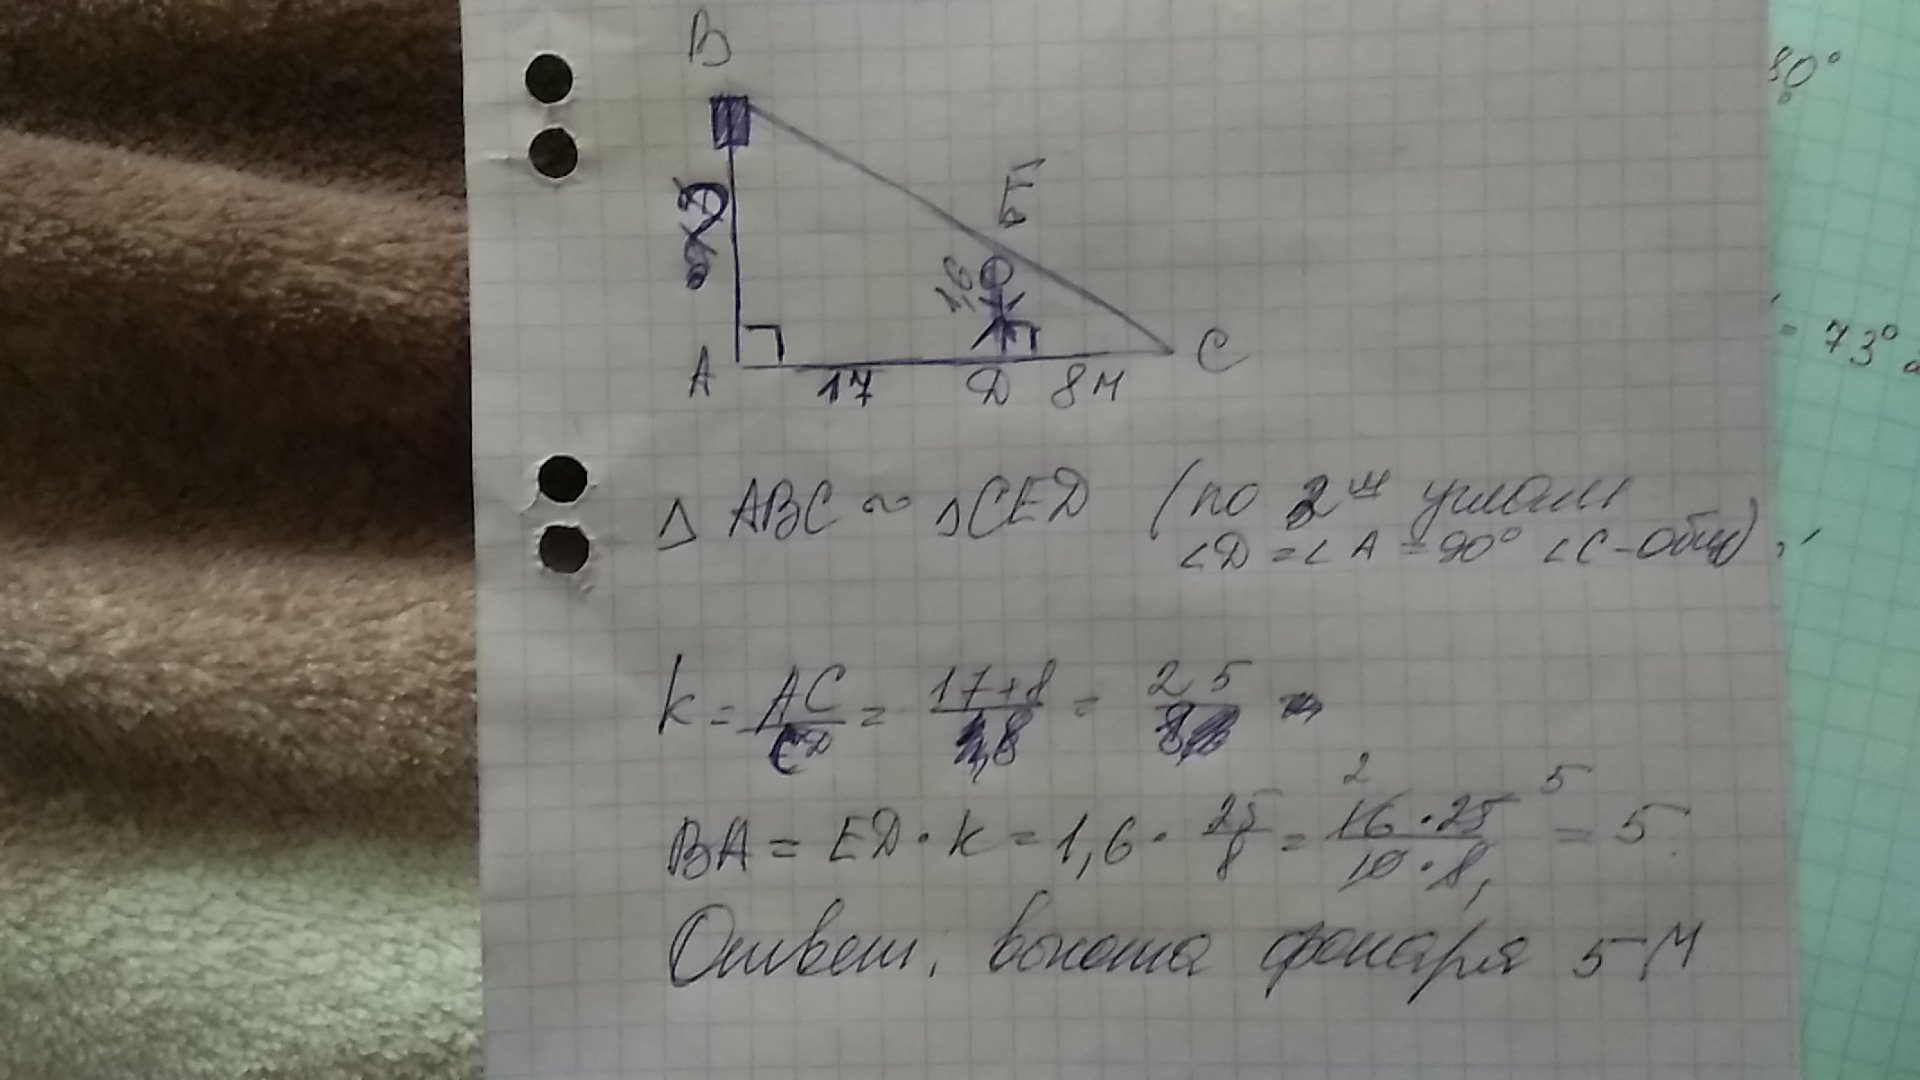 B
E
1,6
A 17 D 8м C
Δ ABC ~ ΔCED (по 2м углам
∠D = ∠A = 90° ∠C - общ)
k = AC/CD = 17+8/8 = 25/8
BA = ED · k = 1,6 · 25/8 = 16 · 25/10 · 8 = 5
2 5
Ответ: высота фонаря 5 м
= 73°